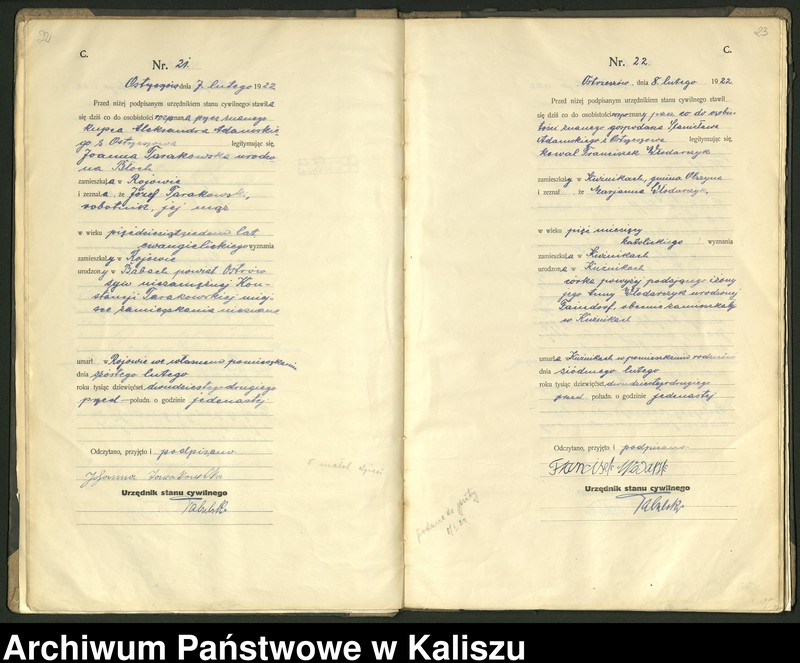 22
C.
Nr. 21.
dnia 7 lutego 1922
Przed niżej podpisanym urzędnikiem stanu cywilnego stawiła
się dziś co do osobistości przez znanego
kupca Aleksandra Adamskie
go z legitymując się,
Joanna Tarakowska urodzo
na Bloch
zamieszkała w Rojowie
i zeznała, że Józef Tarakowski,
robotnik, jej mąż
w wieku lat,
ewangielickiego wyznania
zamieszkały w Rojowie
urodzony w Babach powiat Ostrów
syn niezamężnej Kon-
stancji Tarakowskiej miej-
sce zamieszkania nieznane
umarł w Rojowie we własnem pomieszkaniu
dnia szóstego lutego
roku tysiąc dziewięćset dwudziestego drugiego
przed połudn. o godzinie jedenastej
Odczytano, przyjęto i podpisano
Johanna Tarakowska
Urzędnik stanu cywilnego
23
C.
Nr. 22
Ostrzeszów, dnia 8. lutego 1922
Przed niżej podpisanym urzędnikiem stanu cywilnego stawił
się dziś co do osobistości co do osobi-
stości znanego gospodarza Stanisława
Adamskiego legitymując się,
kowal Franciszek Włodarczyk
zamieszkały w Kuźnikach, gmina Olszyna
i zeznał, że Marjanna Włodarczyk,
w wieku pięć miesięcy
katolickiego wyznania
zamieszkała w Kuźnikach
urodzona w Kuźnikach
córka powyżej podającego i żony
jego Anny Włodarczyk urodzonej
obecnie zamieszkały
w Kuźnikach
umarła Kuźnikach w pomieszkaniu rodziców
dnia siódmego lutego
roku tysiąc dziewięćset dwudziestego drugiego
przed połudn. o godzinie jedenastej
Odczytano, przyjęto i podpisano
Franciszek
Urzędnik stanu cywilnego
Archiwum Państwowe w Kaliszu